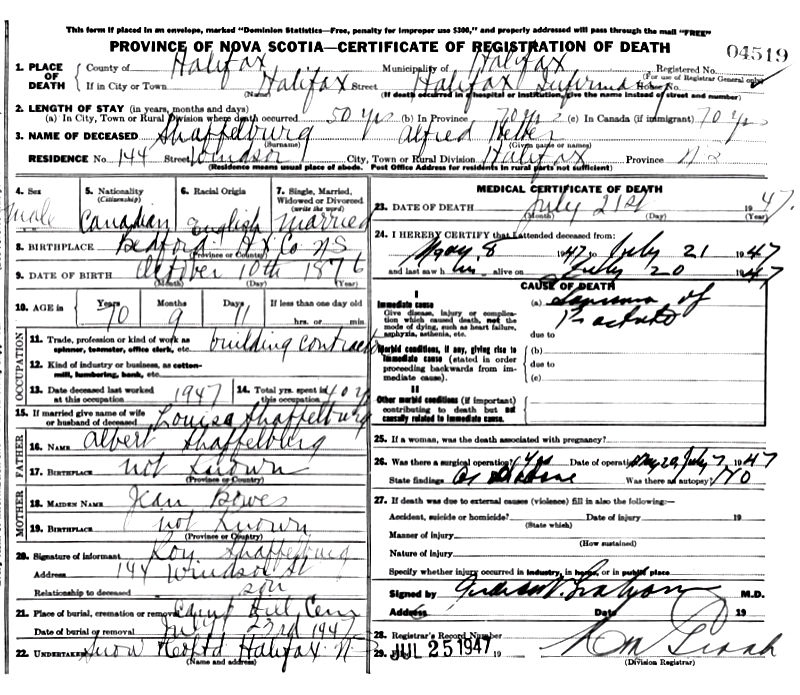 This form if placed in an envelope, marked "Dominion Statistics—Free, penalty for improper use $300," and properly addressed will pass through the mail "FREE"
PROVINCE OF NOVA SCOTIA—CERTIFICATE OF REGISTRATION OF DEATH
04519
1. PLACE OF DEATH County of Halifax Municipality of Halifax Registered No.
(For use of Registrar General only)
If in City or Town Halifax Street Halifax Infirmary House No.
(Name) (If death occurred in hospital or institution, give the name instead of street and number)
2. LENGTH OF STAY (in years, months and days)
(a) In City, Town or Rural Division where death occurred 50 yrs (b) In Province 70 yrs (c) In Canada (if immigrant) 70 yrs
3. NAME OF DECEASED Shaffelburg Alfred Heber
(Surname) (Given name or names)
RESIDENCE No. 144 Street Windsor City, Town or Rural Division Halifax Province N S
(Residence means usual place of abode. Post Office Address for residents in rural parts not sufficient)
4. Sex male
5. Nationality (Citizenship) Canadian
6. Racial Origin English
7. Single, Married, Widowed or Divorced (write the word) Married
8. BIRTHPLACE Bedford Hx Co NS
(Province or Country)
9. DATE OF BIRTH October 10th 1876
(Month) (Day) (Year)
10. AGE in Years 70 Months 9 Days 11 If less than one day old
hrs. or min.
OCCUPATION
11. Trade, profession or kind of work as spinner, teamster, office clerk, etc. building contractor
12. Kind of industry or business, as cotton-mill, lumbering, bank, etc.
13. Date deceased last worked at this occupation 1947
14. Total yrs. spent in this occupation 40 yrs
15. If married give name of wife or husband of deceased Louisa Shaffelburg
FATHER
16. NAME Albert Shaffelburg
17. BIRTHPLACE not known
(Province or Country)
MOTHER
18. MAIDEN NAME Jean Bowes
19. BIRTHPLACE not known
(Province or Country)
20. Signature of informant Roy Shaffelburg
Address 144 Windsor St
Relationship to deceased son
21. Place of burial, cremation or removal Camp Hill Cem
Date of burial or removal July 23rd 1947
22. UNDERTAKER Snow Halifax N S
(Name and address)
MEDICAL CERTIFICATE OF DEATH
23. DATE OF DEATH July 21st 1947.
(Month) (Day) (Year)
24. I HEREBY CERTIFY that I attended deceased from:
May 8 1947 to July 21 1947
and last saw h im alive on July 20 1947
CAUSE OF DEATH
I
Immediate cause
Give disease, injury or complication which caused death, not the mode of dying, such as heart failure, asphyxia, asthenia, etc.
(a) of Prostate
due to
Morbid conditions, if any, giving rise to immediate cause (stated in order proceeding backwards from immediate cause).
(b)
due to
(c)
II
Other morbid conditions (if important) contributing to death but not causally related to immediate cause.
25. If a woman, was the death associated with pregnancy?
26. Was there a surgical operation? Yes Date of operation May 20, July 7 1947
State findings As Above Was there an autopsy? No
27. If death was due to external causes (violence) fill in also the following:—
Accident, suicide or homicide? Date of injury 19
(State which)
Manner of injury
(How sustained)
Nature of injury
Specify whether injury occurred in industry, in home, or in public place
Signed by M.D.
Address Date 19
28. Registrar's Record Number
29. JUL 25 1947
(Division Registrar)